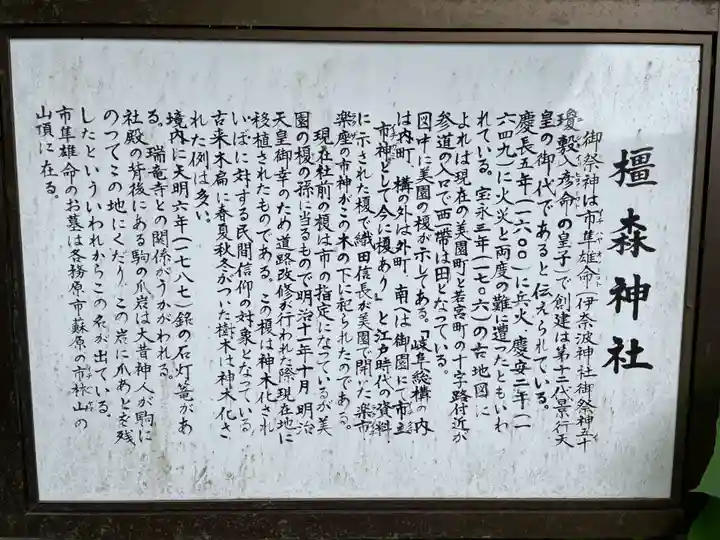 橿森神社
御祭神は市隼雄命(伊奈波神社御祭神五十
瓊敷入彦命の皇子)で創建は第十二代景行天
皇の御代であると伝えられている。
慶長五年(一六〇〇)に兵火、慶安二年(一
六四九)に火災と両度の難に遭ったともいわ
れている。宝永三年(一七〇六)の古地図に
よれば現在の美園町と若宮町の十字路付近が
参道の入口で西一帯は田となっている。
図中に美園の榎が示してある。「岐阜総構の内
は内町、構の外は外町、南は御園にて市立
市神として今に榎あり」と江戸時代の資料
に示された榎で織田信長が美園で開いた楽市
楽座の市神がこの木の下に祀られたのである。
現在社前の榎は市の指定になっているが美
園の榎の孫に当るもので明治十一年十月明治
天皇御幸のため道路改修が行われた際現在地に
移植されたものである。この榎は神木化され
いぼに対する民間信仰の対象となっている
古来木扁に春夏秋冬がついた樹木は神木化さ
れた例は多い。
境内に天明六年(一七八七)銘の石灯篭があ
る。瑞竜寺との関係がうかがわれる。
社殿の背後にある駒の爪岩は大昔神人が駒に
のってこの地にくだり、この岩に爪あとを残
したといういわれからこの名が出ている。
市隼雄命のお墓は各務原市蘇原の市杵山の
山頂に在る。